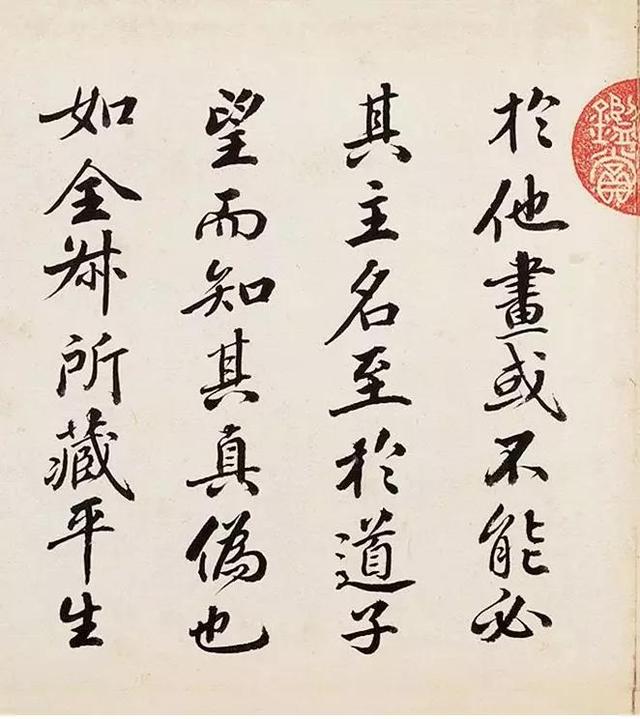 鑑賞
於他畫或不能必
其主名至於道子
望而知其真偽也
如全叔所藏平生